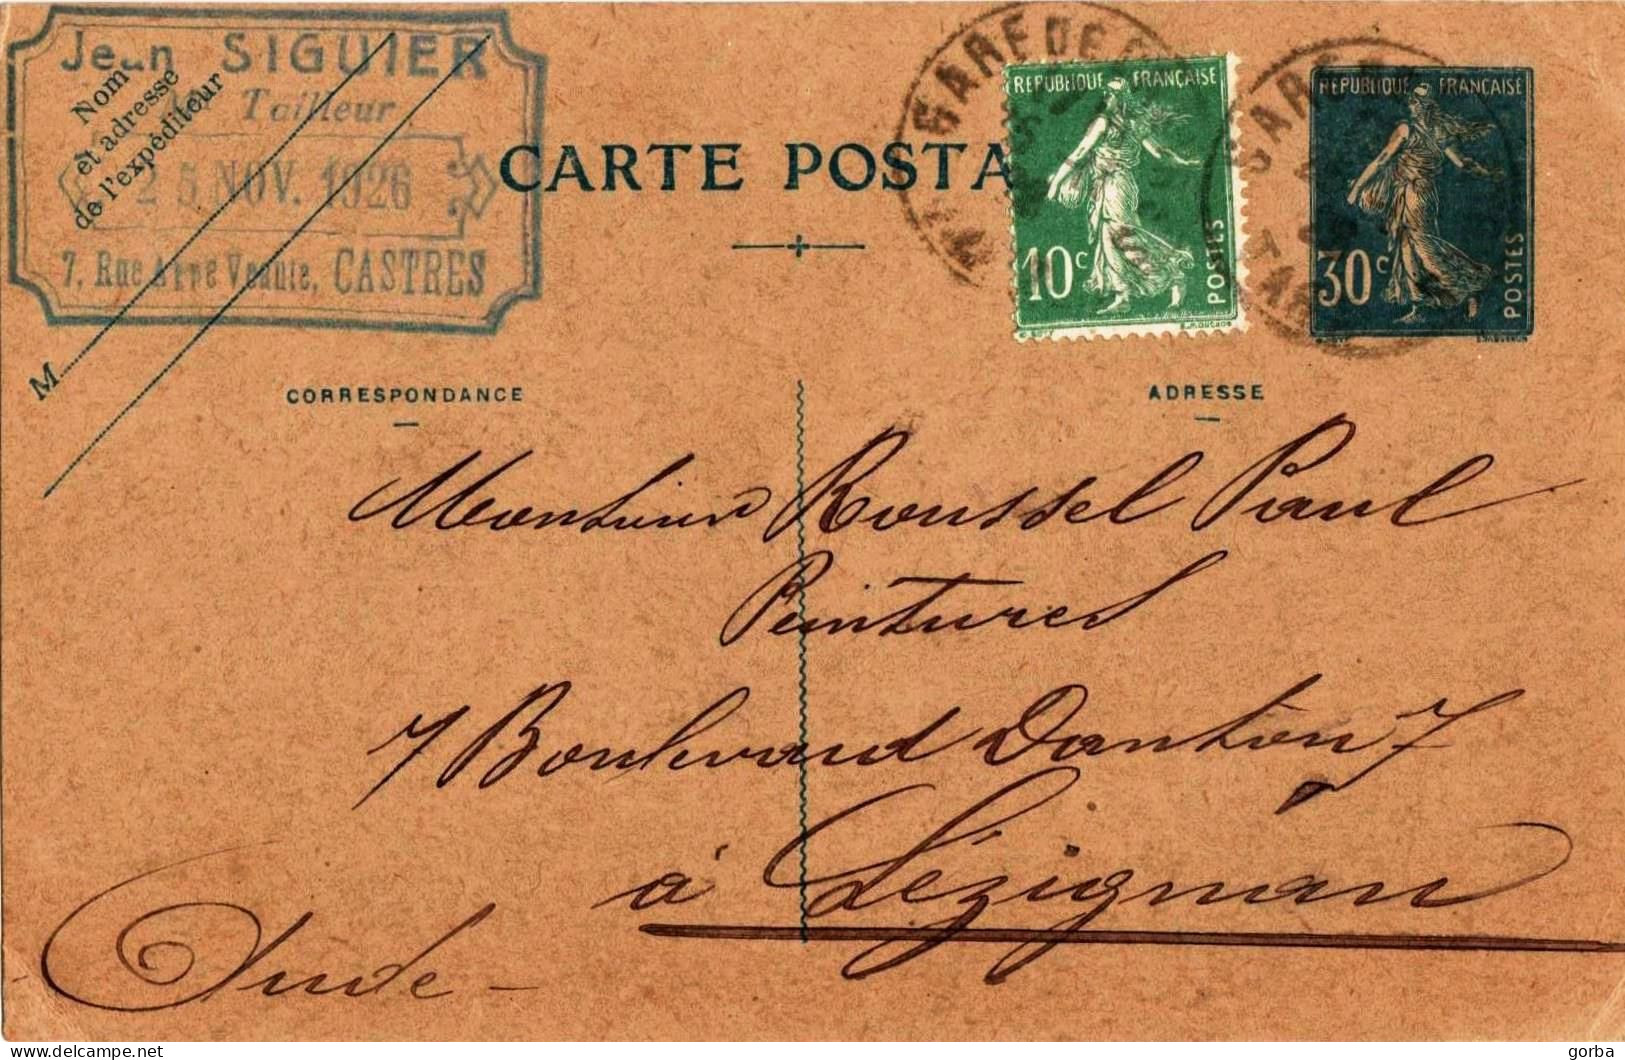 Jean SIGUIER
Tailleur
25 NOV. 1926
7, Rue Venute, CASTRES
Nom
et adresse
de l'expéditeur
M
CARTE POSTA
GARE DE
GARE
TAR
REPUBLIQUE FRANÇAISE
10c
POSTES
REPUBLIQUE FRANÇAISE
30c
POSTES
CORRESPONDANCE
ADRESSE
Monsieur Roussel Paul
Peintures
7 Boulevard Danton 7
à Lézignan
Aude -
gorba